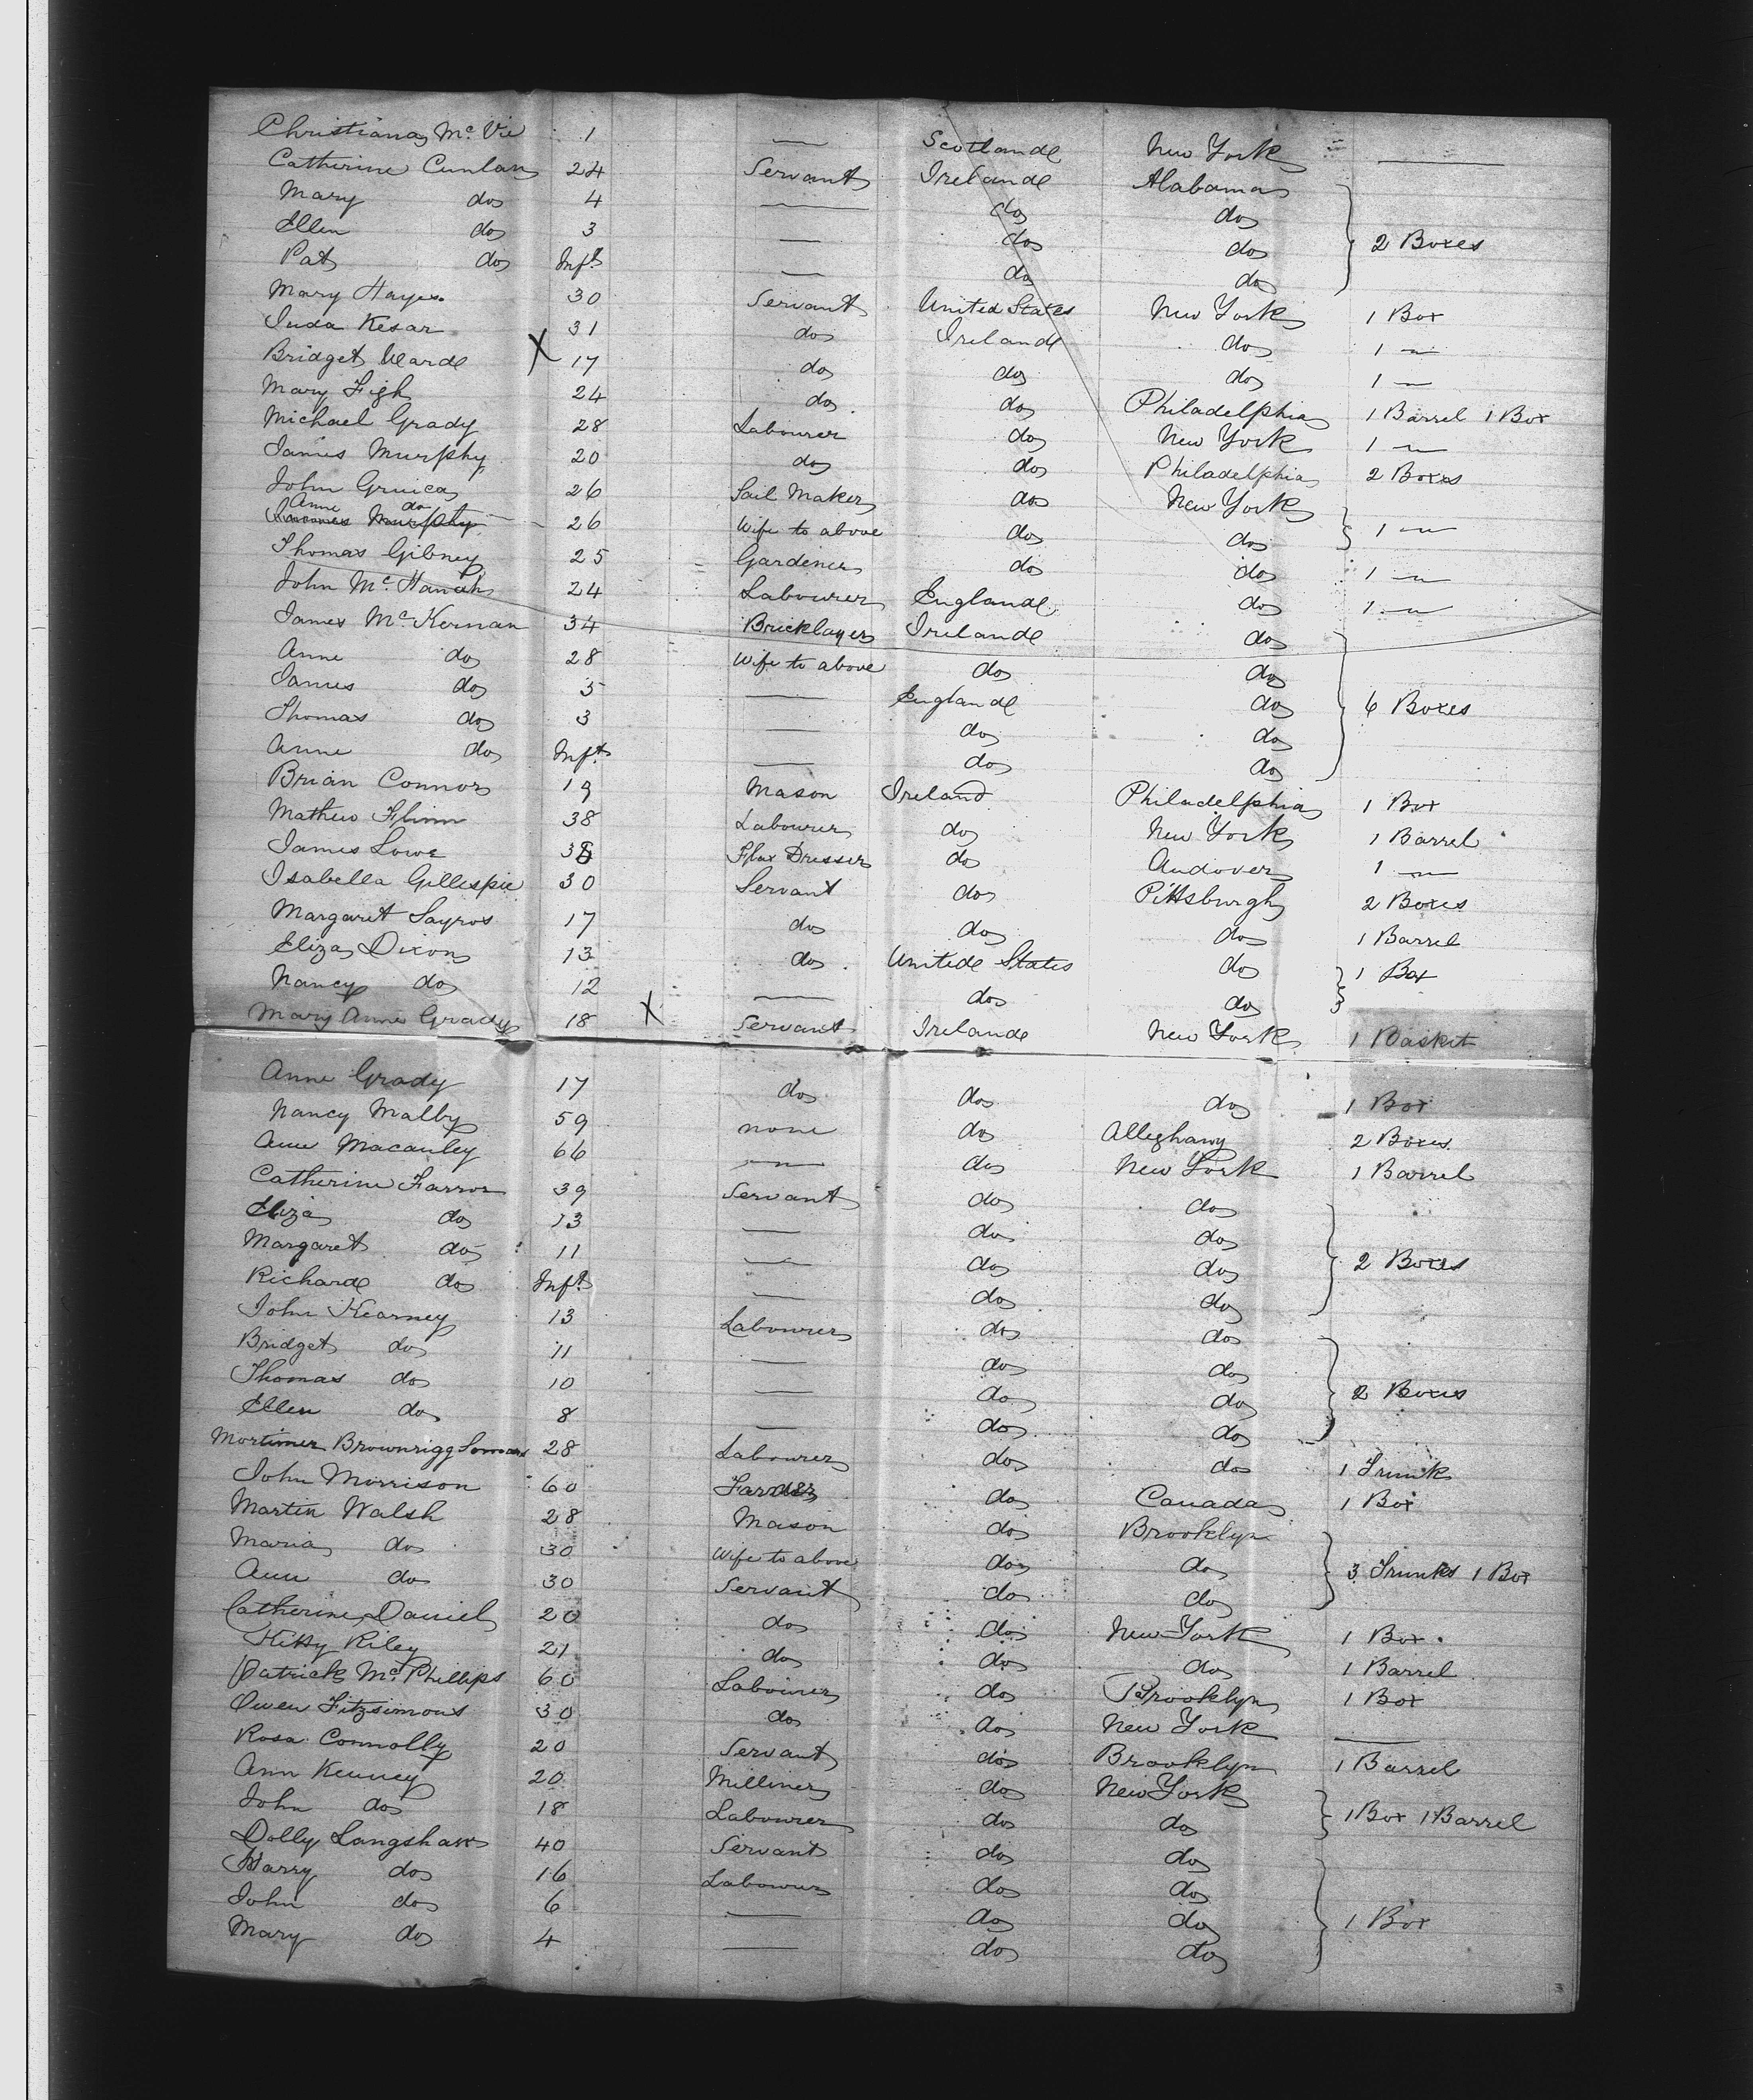 Christiana McVie 1 — Scotland New York —
Catherine Cunlan 24 Servant Ireland Alabama
Mary do 4 — do do
Ellen do 3 — do do 2 Boxes
Pat do Inft — do do
Mary Hayes 30 Servant United States New York 1 Box
Juda Kesar 31 do Ireland do 1 "
Bridget Ward X 17 do do do 1 "
Mary Figh 24 do do Philadelphia 1 Barrel 1 Box
Michael Grady 28 Labourer do New York 1 "
James Murphy 20 do do Philadelphia 2 Boxes
John Gruica 26 Sail Maker do New York
Anne do 26 Wife to above do do 1 "
Thomas Gibney 25 Gardener do do 1 "
John McHanah 24 Labourer England do 1 "
James McKernan 34 Bricklayer Ireland do
Anne do 28 Wife to above do do
James do 5 — England do 6 Boxes
Thomas do 3 — do do
Anne do Inft — do do
Brian Connor 19 Mason Ireland Philadelphia 1 Box
Mathew Flinn 38 Labourer do New York 1 Barrel
James Lowe Flax Dresser do Andover 1 "
Isabella Gillespie 30 Servant do Pittsburgh 2 Boxes
Margaret Sayros 17 do do do 1 Barrel
Eliza Dixon 13 do United States do 1 Box
Nancy do 12 — do do
Mary Anne Grady 18 X Servant Ireland New York 1 Basket
Anne Grady 17 do do do 1 Box
Nancy Malby 59 none do Alleghany 2 Boxes
Ann Macauley 66 " do New York 1 Barrel
Catherine Farror 39 Servant do do
Eliza do 13 — do do
Margaret do 11 — do do 2 Boxes
Richard do Inft — do do
John Kearney 13 Labourer do do
Bridget do 11 — do do
Thomas do 10 — do do 2 Boxes
Ellen do 8 — do do
Mortimer Brownrigg 28 Labourer do do 1 Trunk
John Morrison 60 Farmer do Canada 1 Box
Martin Walsh 28 Mason do Brooklyn
Maria do 30 Wife to above do do 3 Trunks 1 Box
Ann do 30 Servant do do
Catherine Daniel 20 do do New York 1 Box
Kitty Riley 21 do do do 1 Barrel
Patrick McPhillips 60 Labourer do Brooklyn 1 Box
Owen Fitzsimons 30 do do New York —
Rosa Connolly 20 Servant do Brooklyn 1 Barrel
Ann Kenney 20 Milliner do New York
John do 18 Labourer do do 1 Box 1 Barrel
Dolly Langshaw 40 Servant do do
Harry do 16 Labourer do do
John do 6 — do do 1 Box
Mary do 4 — do do